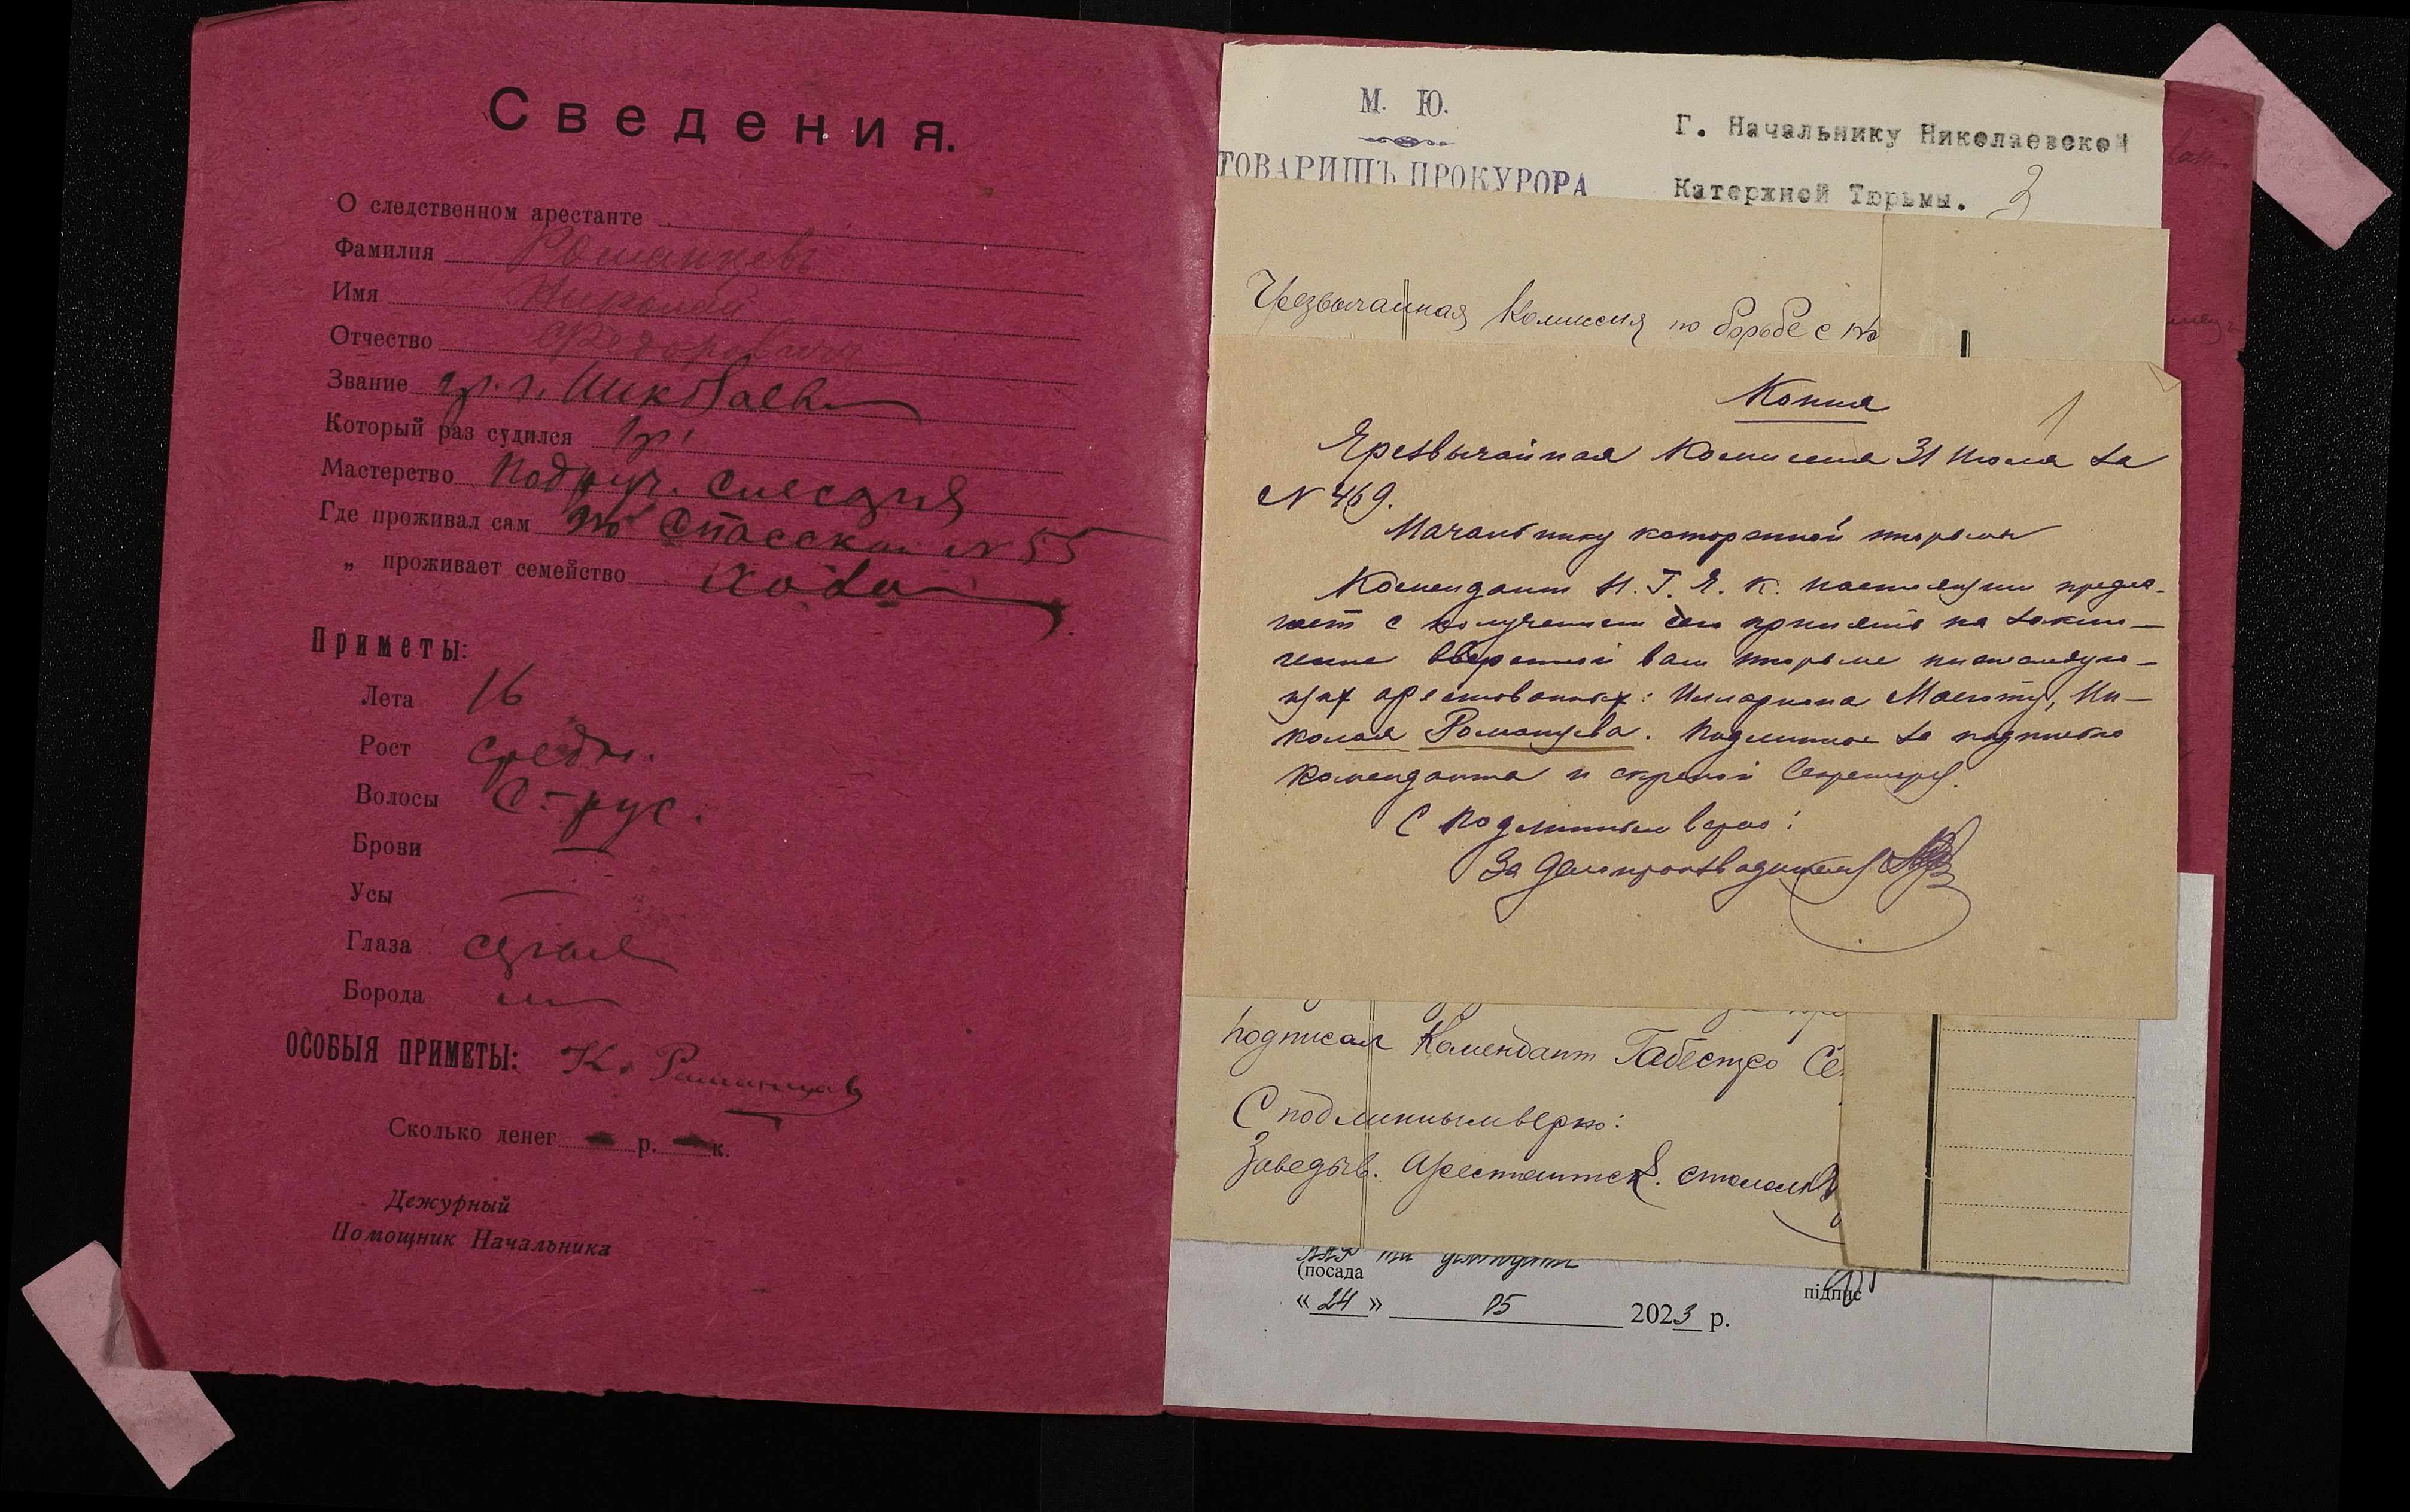 Сведения.
О следственном арестанте
Фамилия Романцевъ
Имя Николай
Отчество Федорович
Звание гр. г. Николаева
Который раз судился 1 р.
Мастерство Подруч. слесаря
Где проживал сам по Спасской N 55
„ проживает семейство
Приметы:
Лета 16
Рост средн.
Волосы с.-рус.
Брови —
Усы —
Глаза серые
Борода
ОСОБЫЯ ПРИМЕТЫ: Н. Романцев
Сколько денег — р. — к.
Дежурный
Помощник Начальника
М. Ю.
ТОВАРИЩЪ ПРОКУРОРА
Г. Начальнику Николаевской
Каторжной Тюрьмы.
Чрезвычайная Комиссия по борьбе с
Копия
1
Чрезвычайная Комиссия 31 июля за
N 469.
Начальнику каторжной тюрьмы
Комендант Н. Г. Ч. К. настоящим предла-
гает с получением сего принять на заклю-
чение вверенной вам тюрьме нижеследую-
щих арестованных: Иллариона Ни-
колая Романцева. Подлинное за подписью
Коменданта и скрепой Секретаря.
С подлинным верно:
За Делопроизводителя
подписал Комендант Се
С подлинным верно:
Заведыв. Арестантск. столом
(посада
підпис
« 24 » 05 2023 р.